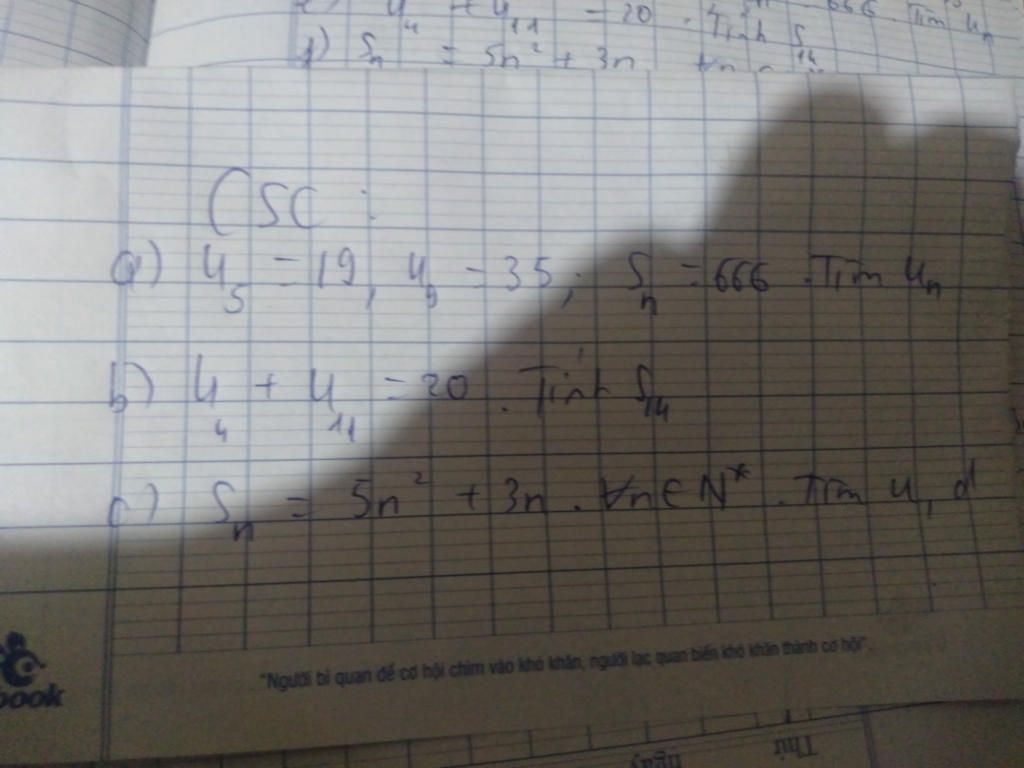 u₄ + u₁₁ = 20 . Tính S₁₄ 666 . Tìm uₙ
f) Sₙ = 5n² + 3n
CSC :
a) u₅ = 19, u₉ = 35; Sₙ = 666 . Tìm uₙ
b) u₄ + u₁₁ = 20 . Tính S₁₄
c) Sₙ = 5n² + 3n . ∀n ∈ N* . Tìm u₁, d
book
"Người bi quan để cơ hội chìm vào khó khăn, người lạc quan biến khó khăn thành cơ hội".
Thứ
ngày